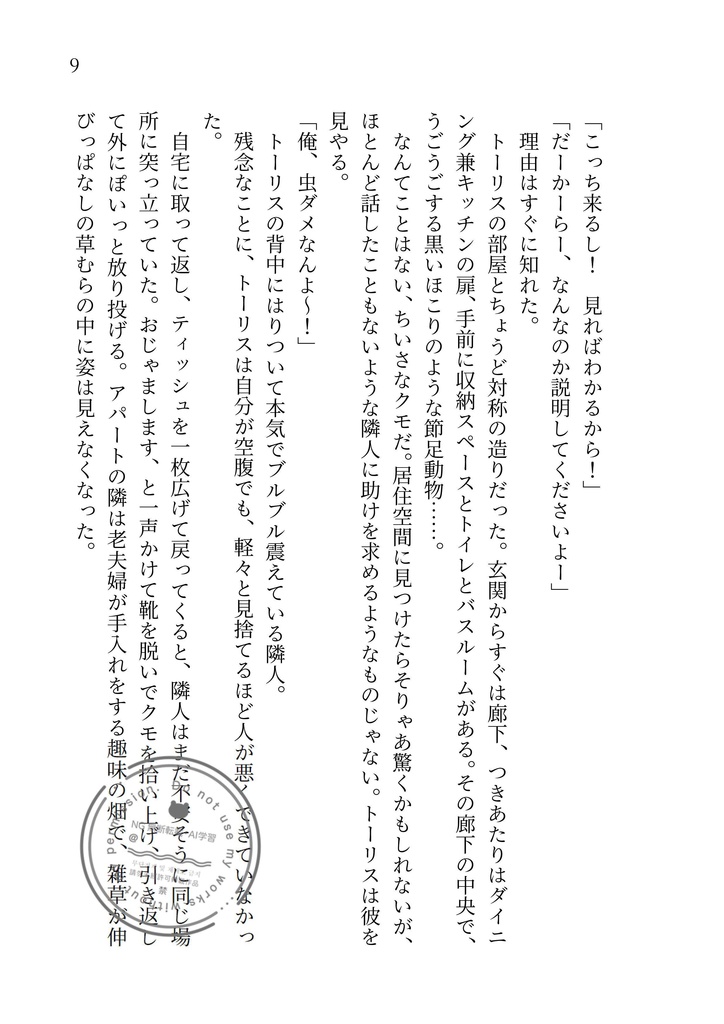 9
「こっち来るし！　見ればわかるから！」
「だーかーらー、なんなのか説明してくださいよー」
　理由はすぐに知れた。
　トーリスの部屋とちょうど対称の造りだった。玄関からすぐは廊下、つきあたりはダイニ
ング兼キッチンの扉、手前に収納スペースとトイレとバスルームがある。その廊下の中央で、
うごうごする黒いほこりのような節足動物……。
　なんてことはない、ちいさなクモだ。居住空間に見つけたらそりゃあ驚くかもしれないが、
ほとんど話したこともないような隣人に助けを求めるようなものじゃない。トーリスは彼を
見やる。
「俺、虫ダメなんよ～！」
　トーリスの背中にはりついて本気でブルブル震えている隣人。
　残念なことに、トーリスは自分が空腹でも、軽々と見捨てるほど人が悪くできていなかっ
た。
　自宅に取って返し、ティッシュを一枚広げて戻ってくると、隣人はまだ不安そうに同じ場
所に突っ立っていた。おじゃまします、と一声かけて靴を脱いでクモを拾い上げ、引き返し
て外にぽいっと放り投げる。アパートの隣は老夫婦が手入れをする趣味の畑で、雑草が伸
びっぱなしの草むらの中に姿は見えなくなった。
Do not use my works without permission.
AI学習
禁